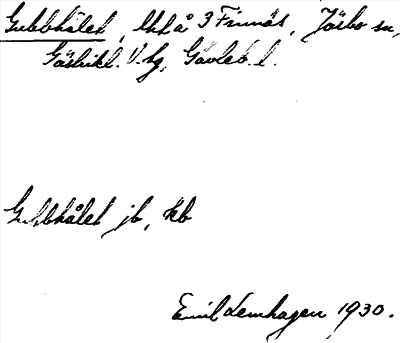 Gubbhålet, lht å 3 Finnäs, Järbo sn,
Gästrikl. V. hg, Gävleb. l.
Gubbhålet jb, kb
Emil Lemhagen 1930.